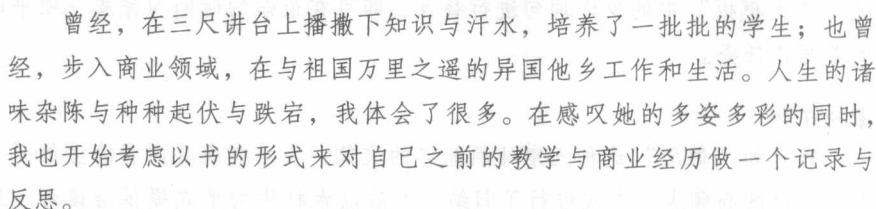 曾经，在三尺讲台上播撒下知识与汗水，培养了一批批的学生；也曾
经，步入商业领域，在与祖国万里之遥的异国他乡工作和生活。人生的诸
味杂陈与种种起伏与跌宕，我体会了很多。在感叹她的多姿多彩的同时，
我也开始考虑以书的形式来对自己之前的教学与商业经历做一个记录与
反思。